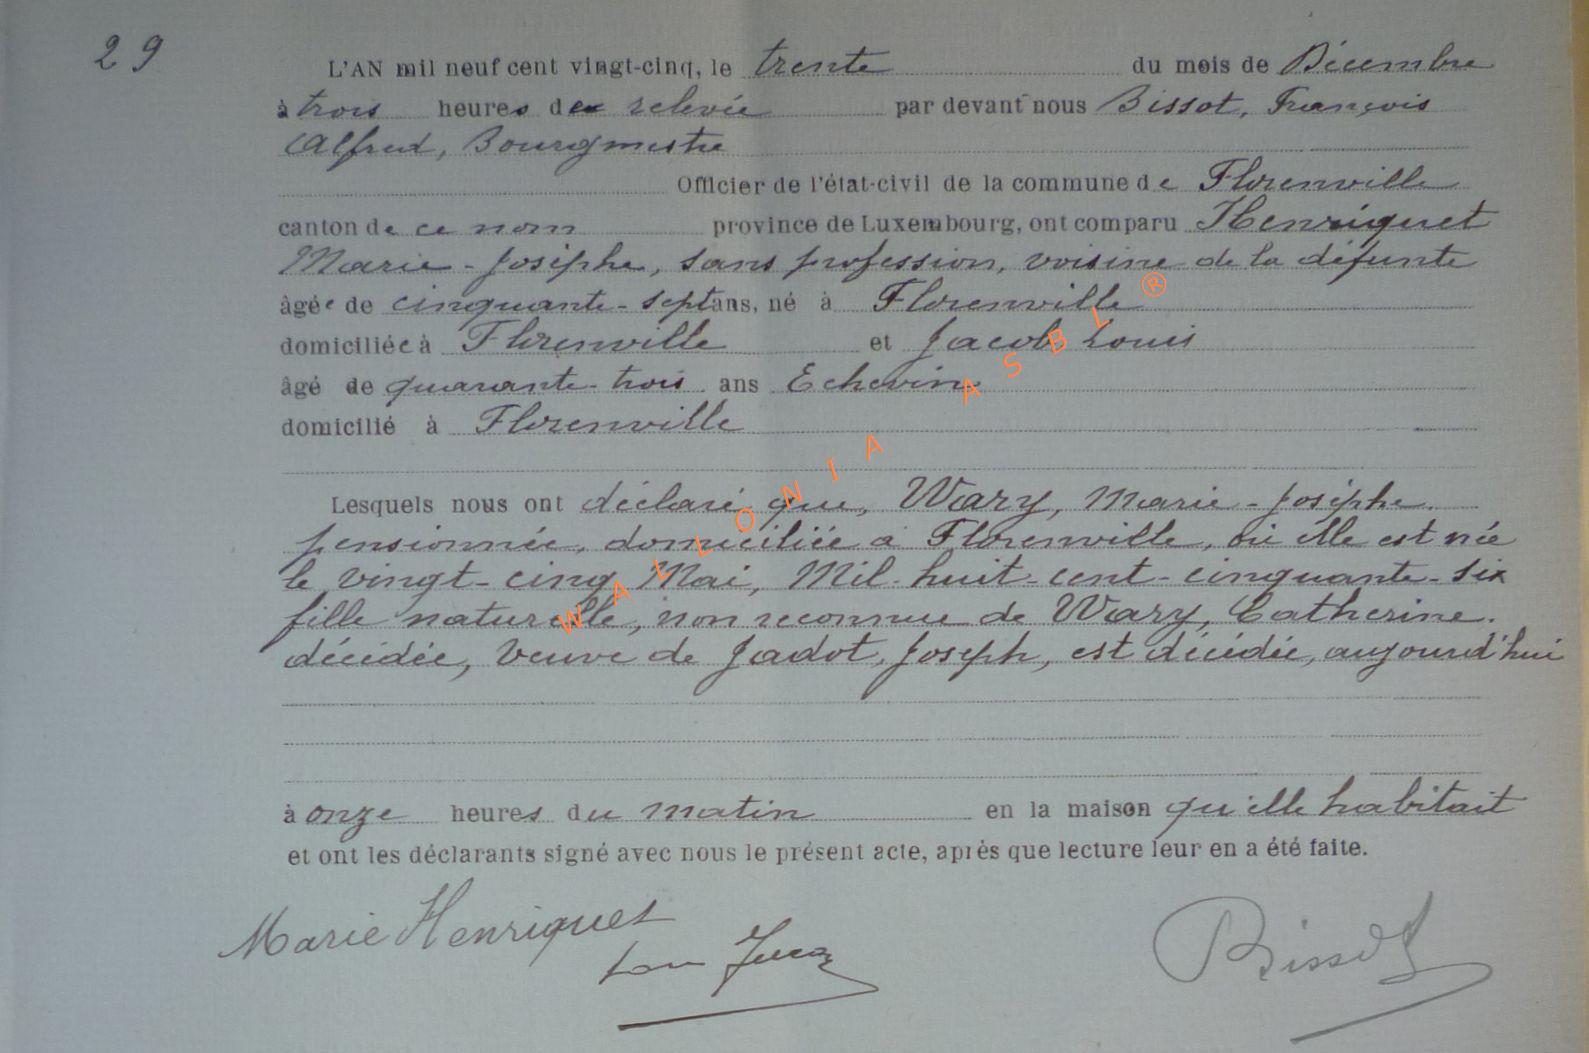 29
L'AN mil neuf cent vingt-cinq, le trente du mois de Décembre
à trois heures de relevée par devant nous Bissot, François
Alfred, Bourgmestre
Officier de l'état-civil de la commune de Florenville
canton de ce nom province de Luxembourg, ont comparu Henriquet
Marie-Josèphe, sans profession, voisine de la défunte
âgée de cinquante-sept ans, né à Florenville
domiciliée à Florenville et Jacob Louis
âgé de quarante-trois ans Echevin
domicilié à Florenville
Lesquels nous ont déclaré que, Wary, Marie-Josèphe.
pensionnée, domiciliée à Florenville, où elle est née
le vingt-cinq Mai, Mil-huit-cent-cinquante-six
fille naturelle, non reconnue de Wary, Catherine.
décédée, veuve de Jadot, Joseph, est décédée, aujourd'hui
à onze heures du matin en la maison qu'elle habitait
et ont les déclarants signé avec nous le présent acte, après que lecture leur en a été faite.
Marie Henriquet
Bissot
WALLONIA ASBL ®